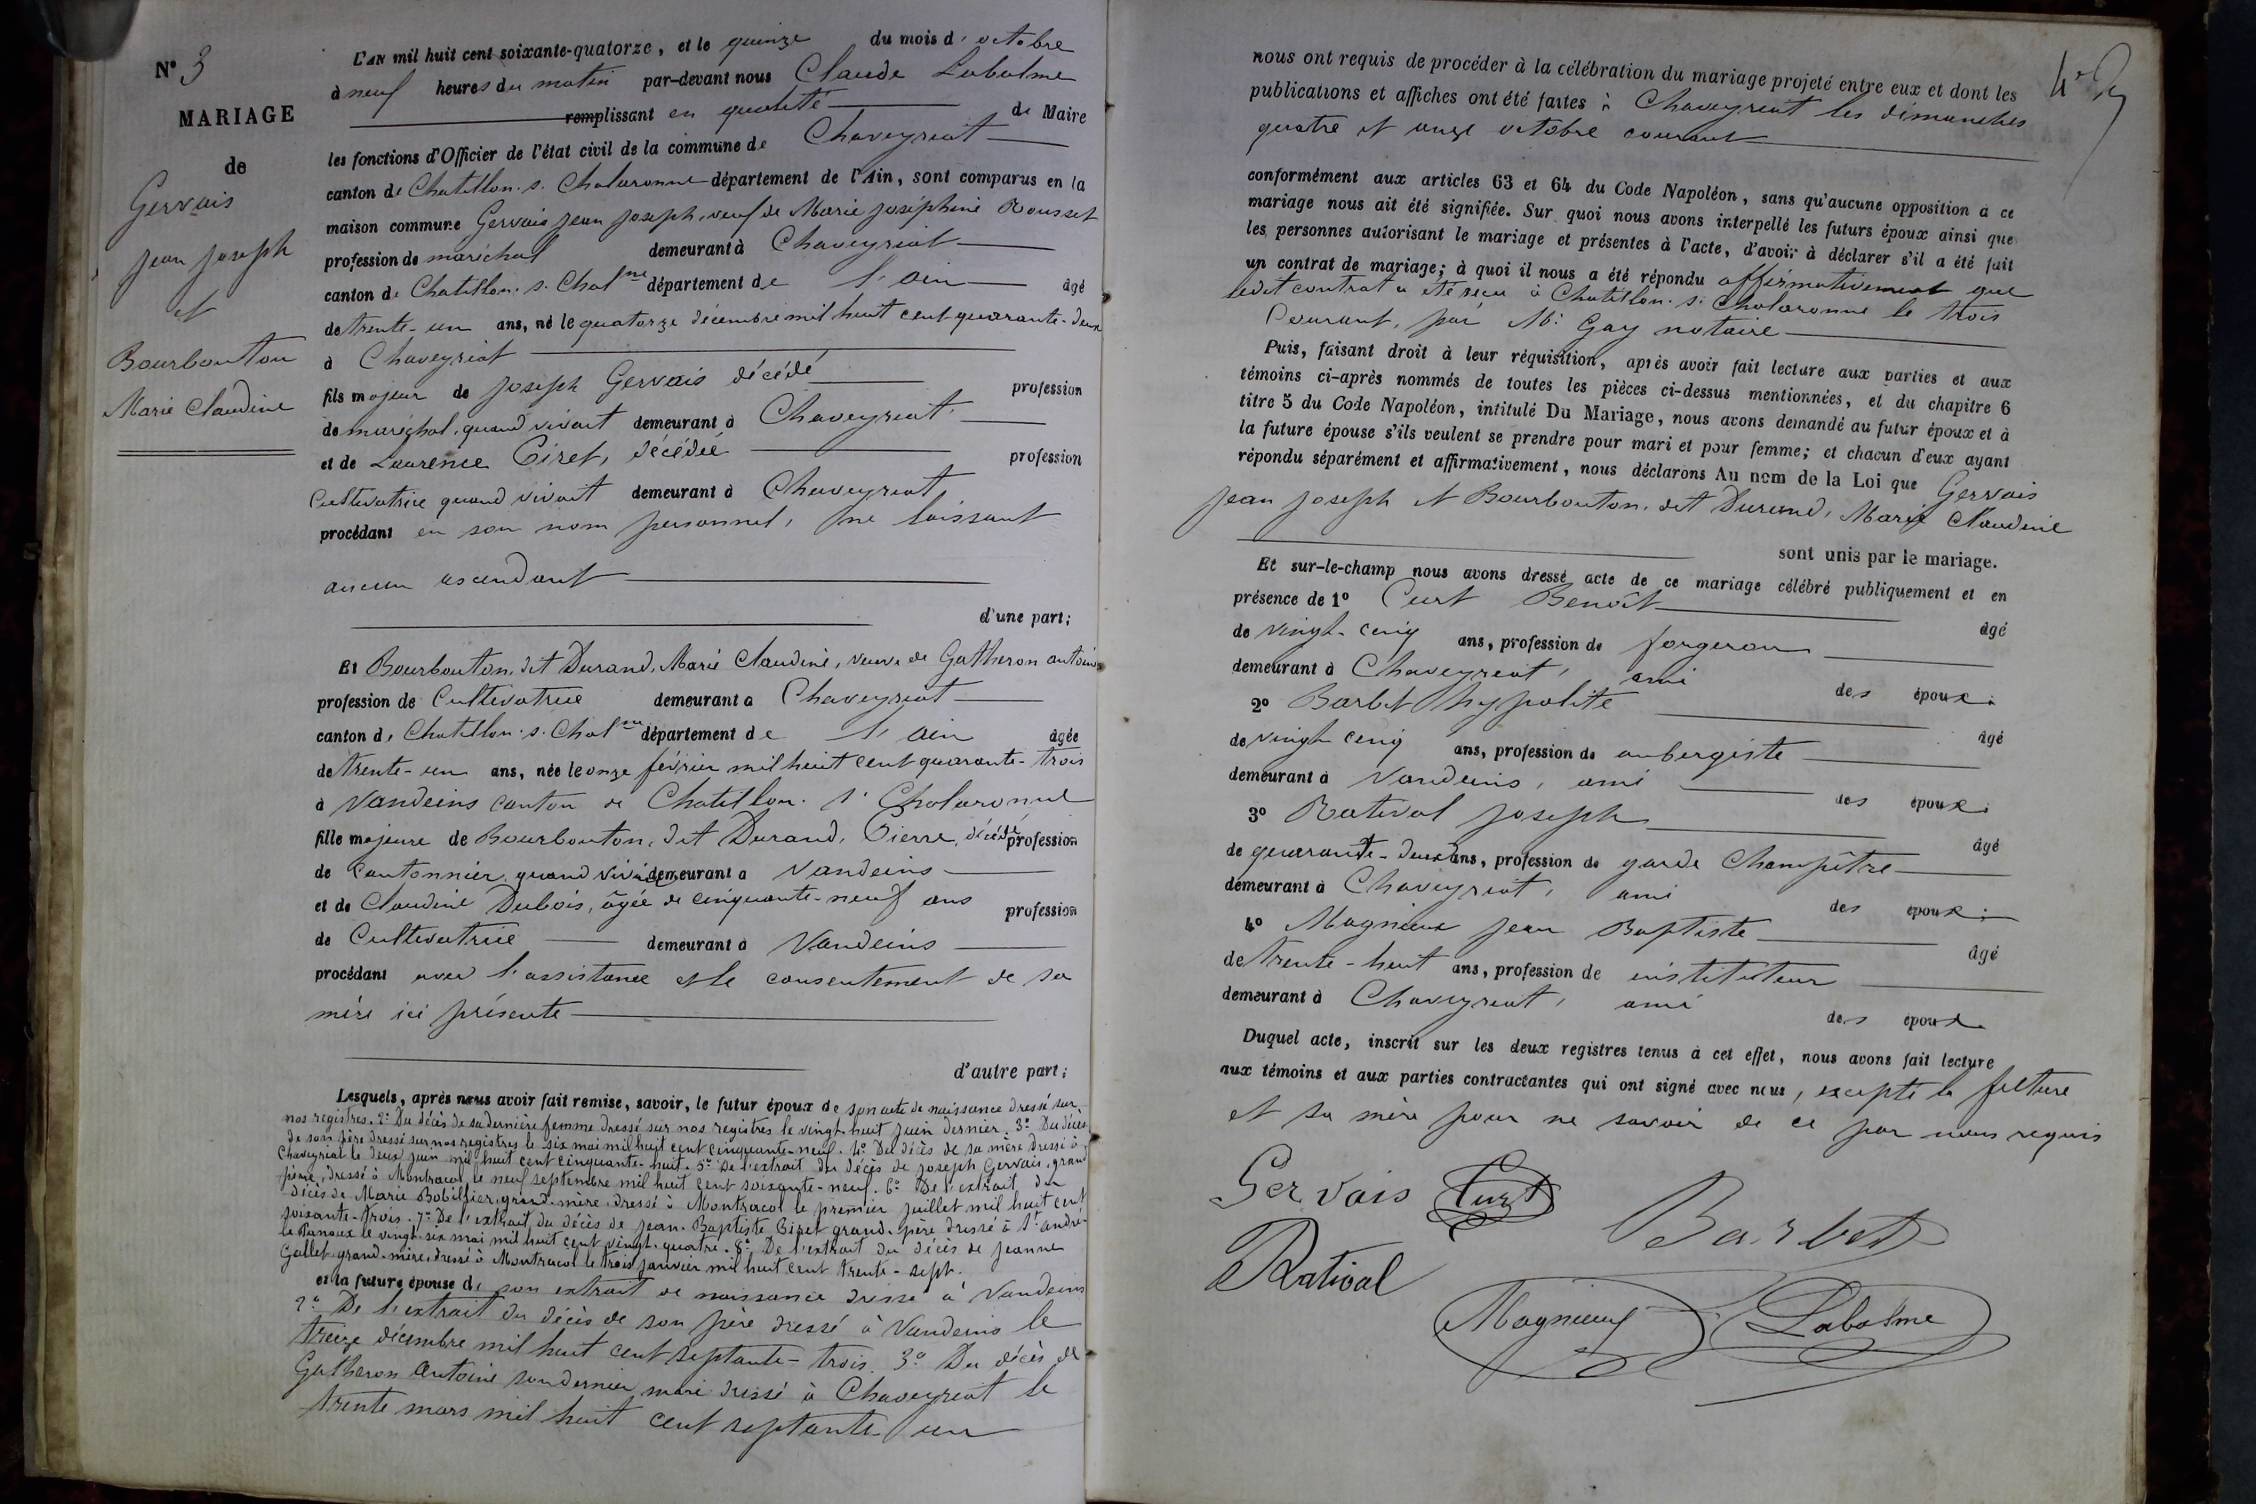 N° 3
MARIAGE
de
Gervais
jean joseph
et
Bourbouton
Marie Claudine
L'AN mil huit cent soixante-quatorze, et le quinze du mois d'octobre
à neuf heures du matin par-devant nous Claude Labalme
remplissant en qualité de Maire
les fonctions d'Officier de l'état civil de la commune de Chaveyriat
canton de Chatillon-s-Chalaronne département de l'Ain, sont comparus en la
maison commune Gervais jean joseph, veuf de Marie joséphine Rousset
profession de maréchal demeurant à Chaveyriat
canton de Chatillon-s-Chalne département de l'ain âgé
de trente-un ans, né le quatorze décembre mil huit cent quarante-deux
à Chaveyriat
fils majeur de joseph Gervais décédé profession
de maréchal, quand vivait demeurant à Chaveyriat
et de Laurence Ciret, décédée profession
Cultivatrice quand vivait demeurant à Chaveyriat
procédant en son nom personnel, ne laissant
aucun ascendant
d'une part;
Et Bourbouton, dit Durand, Marie Claudine, veuve de Gatheron antoine
profession de Cultivatrice demeurant à Chaveyriat
canton de Chatillon-s-Chalne département de l'ain âgée
de trente-un ans, née le onze février mil huit cent quarante-trois
à Vandeins canton de Chatillon-s-Chalaronne
fille majeure de Bourbouton, dit Durand, Pierre, décédé profession
de Cantonnier, quand vivait demeurant à Vandeins
et de Claudine Dubois, âgée de cinquante-neuf ans profession
de Cultivatrice demeurant à Vandeins
procédant avec l'assistance et le consentement de sa
mère ici présente
d'autre part;
Lesquels, après nous avoir fait remise, savoir, le futur époux de son acte de naissance dressé sur
nos registres. 2° Du décès de sa dernière femme dressé sur nos registres le vingt-huit juin dernier. 3° Du décès
de son père dressé sur nos registres le six mai mil huit cent cinquante-neuf. 4° Du décès de sa mère dressé à
Chaveyriat le deux juin mil huit cent cinquante-huit. 5° De l'extrait du décès de joseph Gervais, grand
père, dressé à Montracol le neuf septembre mil huit cent soixante-neuf. 6° De l'extrait du
décès de Marie Bobillier, grand-mère, dressé à Montracol le premier juillet mil huit cent
soixante-trois. 7° De l'extrait du décès de jean-Baptiste Ciret grand-père dressé à St andré-
le Panoux le vingt-six mai mil huit cent vingt-quatre. 8° De l'extrait du décès de jeanne
Gallet grand-mère, dressé à Montracol le trois janvier mil huit cent trente-sept.
et la future épouse de son extrait de naissance dressé à Vandeins
2° De l'extrait du décès de son père dressé à Vandeins le
treize décembre mil huit cent septante-trois. 3° Du décès de
Gatheron Antoine son dernier mari dressé à Chaveyriat le
trente mars mil huit cent septante-un
nous ont requis de procéder à la célébration du mariage projeté entre eux et dont les
publications et affiches ont été faites à Chaveyriat les dimanches
quatre et onze octobre courant
conformément aux articles 63 et 64 du Code Napoléon, sans qu'aucune opposition à ce
mariage nous ait été signifiée. Sur quoi nous avons interpellé les futurs époux ainsi que
les personnes autorisant le mariage et présentes à l'acte, d'avoir à déclarer s'il a été fait
un contrat de mariage; à quoi il nous a été répondu affirmativement que
ledit contrat a été reçu à Chatillon-s-Chalaronne le trois
Courant, par Me Gay notaire
Puis, faisant droit à leur réquisition, après avoir fait lecture aux parties et aux
témoins ci-après nommés de toutes les pièces ci-dessus mentionnées, et du chapitre 6
titre 5 du Code Napoléon, intitulé Du Mariage, nous avons demandé au futur époux et à
la future épouse s'ils veulent se prendre pour mari et pour femme; et chacun d'eux ayant
répondu séparément et affirmativement, nous déclarons Au nom de la Loi que Gervais
jean joseph et Bourbouton, dit Durand, Marie Claudine
sont unis par le mariage.
Et sur-le-champ nous avons dressé acte de ce mariage célébré publiquement et en
présence de 1° Curt Benoît âgé
de vingt-cinq ans, profession de forgeron
demeurant à Chaveyriat, ami des époux.
2° Barbet hypolite âgé
de vingt-cinq ans, profession de aubergiste
demeurant à Vandeins, ami des époux.
3° Ratival joseph âgé
de quarante-deux ans, profession de garde Champêtre
demeurant à Chaveyriat, ami des époux.
4° Magnieux jean Baptiste âgé
de trente-huit ans, profession de instituteur
demeurant à Chaveyriat, ami des époux
Duquel acte, inscrit sur les deux registres tenus à cet effet, nous avons fait lecture
aux témoins et aux parties contractantes qui ont signé avec nous, excepté la future
et sa mère pour ne savoir de ce par nous requis
Gervais Curt Barbet
Ratival
Magnieux Labalme